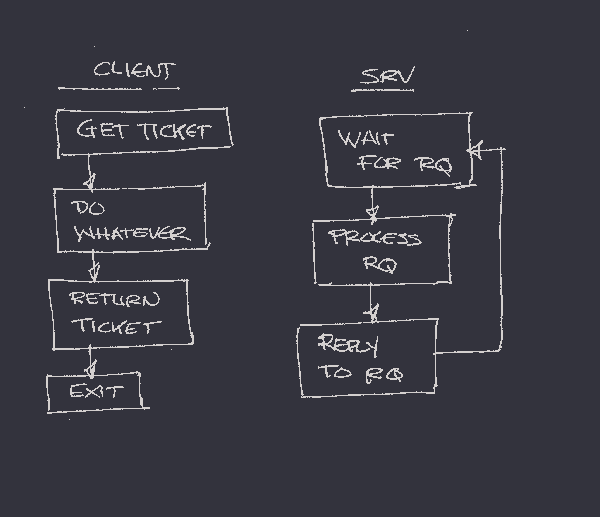 CLIENT
GET TICKET
DO
WHATEVER
RETURN
TICKET
EXIT
SRV
WAIT
FOR RQ
PROCESS
RQ
REPLY
TO RQ